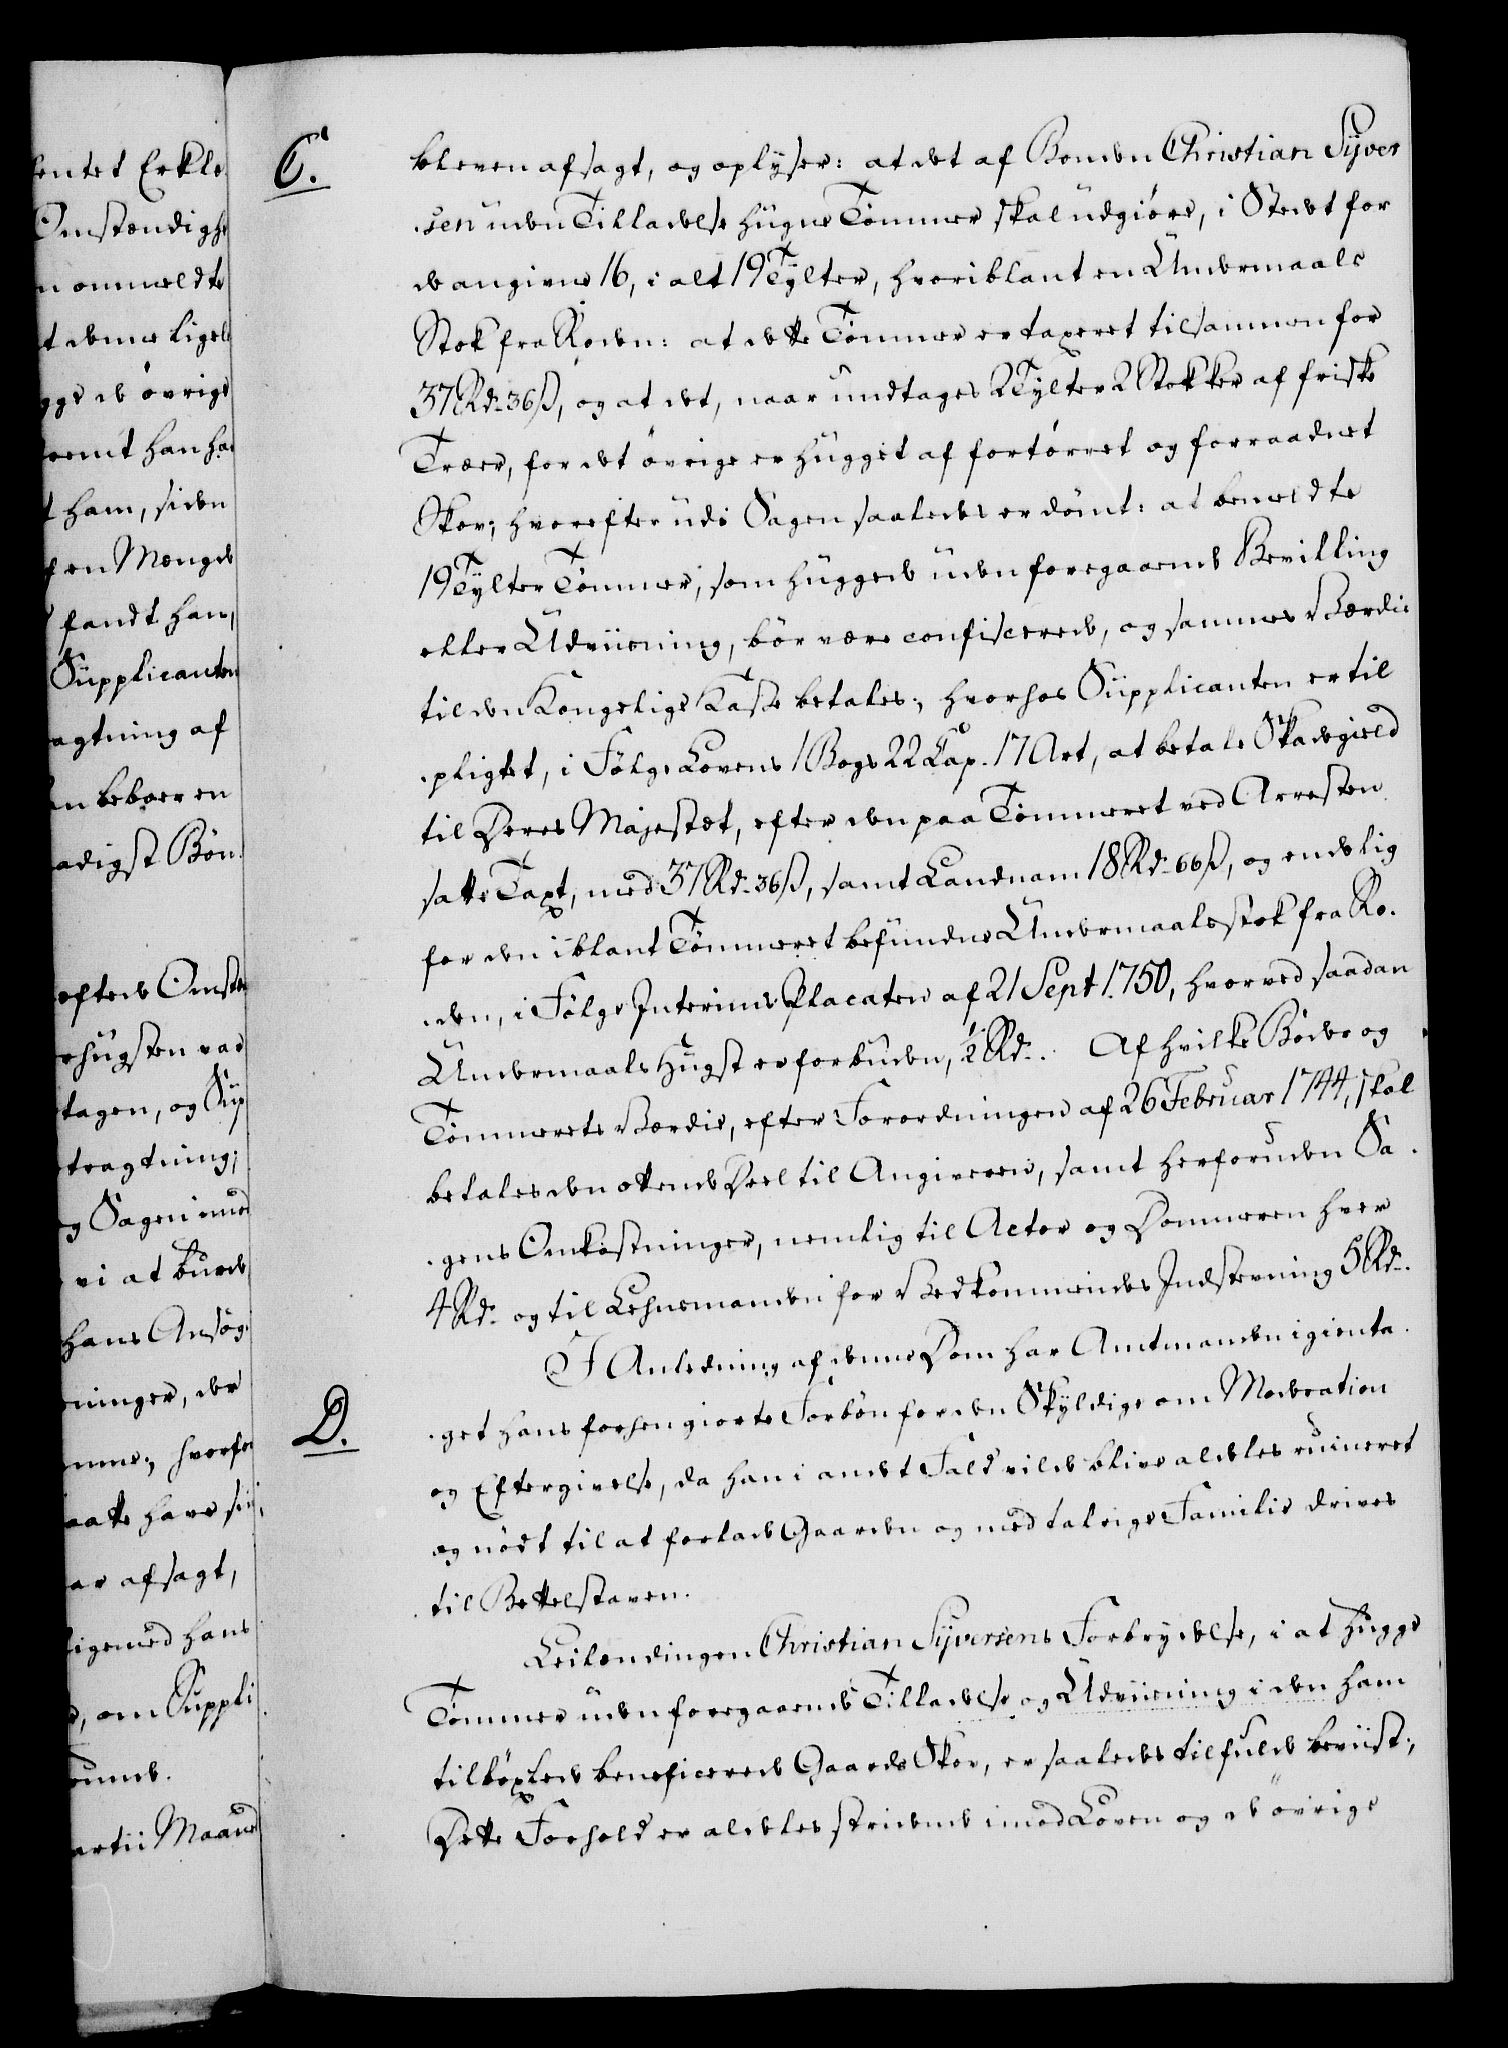 entet Erkle
Omstændighe
n ommeldte
t denne ligele
gge de øvrige
ham, siden
f en Mængde
fandt han,
Süpplicanten
agtning af
en beboer en
adigst Bøn.
efter de Omstæn
ehugsten var
tagen, og Süp
tragtning;
g Sagen imod
vi at burde
hans Ansøg
ninger, der
nme; hvorfor
aatte have sin
ar afsagt,
ligemed hans
om Suppli
artii Maaned
C.
bleven afsagt, og oplyser: at det af Bonden Christian Syver
sen uden Tilladelse hugne Tømmer skal udgiøre, i Stedet for
de angivne 16, i alt 19 Tylter, hvoriblant en Undermaals
Stok fra Roden: at dette Tømmer er taxeret tilsammen for
37 Rd. 36 ß, og at det, naar undtages 2 Tylter 2 Stokker af friske
Træer, for det øvrige er hugget af fortørret og forraadnet
Skov; hvorefter udi Sagen saaledes er dømt: at bemeldte
19 Tylter Tømmer, som huggede uden foregaaende Bevilling
eller Udviisning, bør være confiscerede, og sammes Værdie
til den Kongelige Kasse betales; hvorhos Süpplicanten er til
pligtet, i Følge Lovens 1 Bogs 22 Cap. 17 Art, at betale Skadegield
til Deres Majestæt, efter den paa Tømmeret ved Arresten
satte Taxt, med 37 Rd. 36 ß, samt Landnam 18 Rd. 66 ß, og endelig
for den iblant Tømmeret befundne Undermaalsstok fra Ro-
den, i Følge Interims Placaten af 21 Sept 1750, hvorved saadan
Undermaals Hugst er forbuden, ½ Rd. Af hvilke Bøder og
Tømmerets Værdie, efter Forordningen af 26 Februar 1744, skal
betales den ottende Deel til Angiveren, samt herforuden Sa-
gens Omkostninger, nemlig til Actor og Dommeren hver
4 Rd. og til Lehnsmanden for Vedkommendes Indstevning 5 Rd.
I Anledning af denne Dom har Amtmanden igienta
D.
get hans forhen giorte Forbøn for den Skyldige om Moderation
og Eftergivelse, da han i andet Fald vilde blive aldeles ruineret
og nødt til at forlade Gaarden og med talrige Familie drives
til Bettelstaven.
Leilændingen Christian Syversens Forbrydelse, i at hugge
Tømmer uden foregaaende Tilladelse og Udviisning i den ham
tilbøxlede beneficerede Gaards Skov, er saaledes tilfulde beviist;
Dette Forhold er aldeles stridende imod Loven og de øvrige